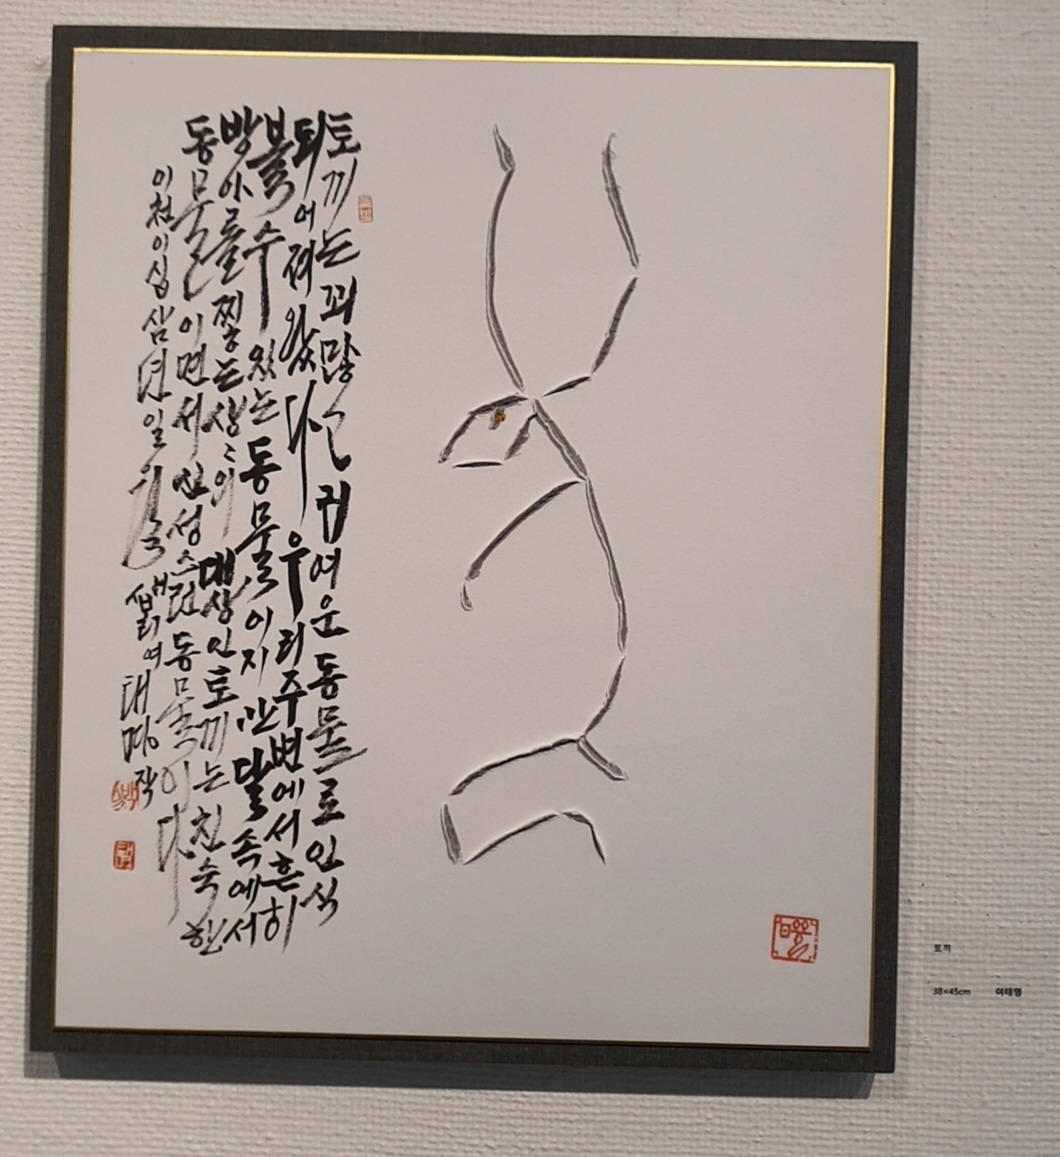 토끼는 꾀많은 귀여운 동물로 인식
되어져 왔다 우리 주변에서 흔히
볼 수 있는 동물이지만 달 속에서
방아를 찧는 상상의 대상인 토끼는 친숙한
동물이면서 신성스런 동물이다
이천이십삼년 일월 샘여 태명 작
토끼
38×45cm 이태명